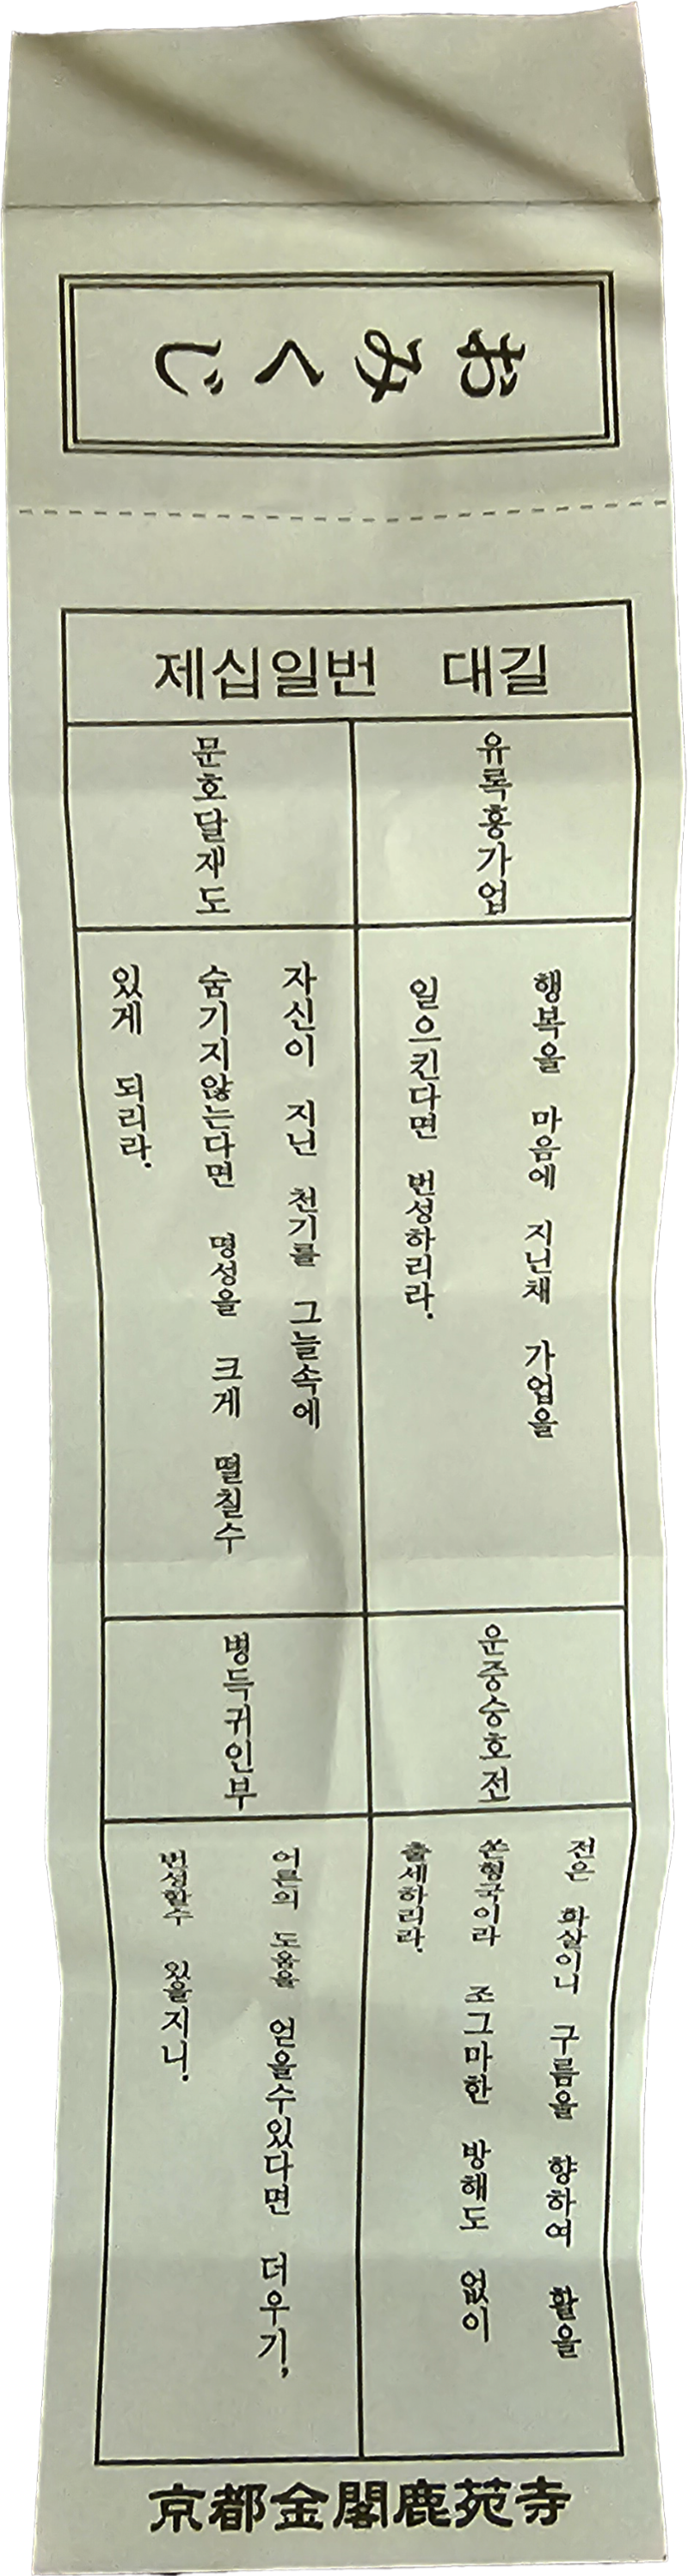 おみくじ
제십일번 대길
유록흥가업
행복을 마음에 지닌채 가업을
일으킨다면 번성하리라.
문호달재도
자신이 지닌 천기를 그늘속에
숨기지않는다면 명성을 크게 떨칠수
있게 되리라.
운중승호전
전은 화살이니 구름을 향하여 활을
쏜형국이라 조그마한 방해도 없이
출세하리라.
병득귀인부
어른의 도움을 얻을수있다면 더우기,
번성할수 있을지니.
京都金閣鹿苑寺